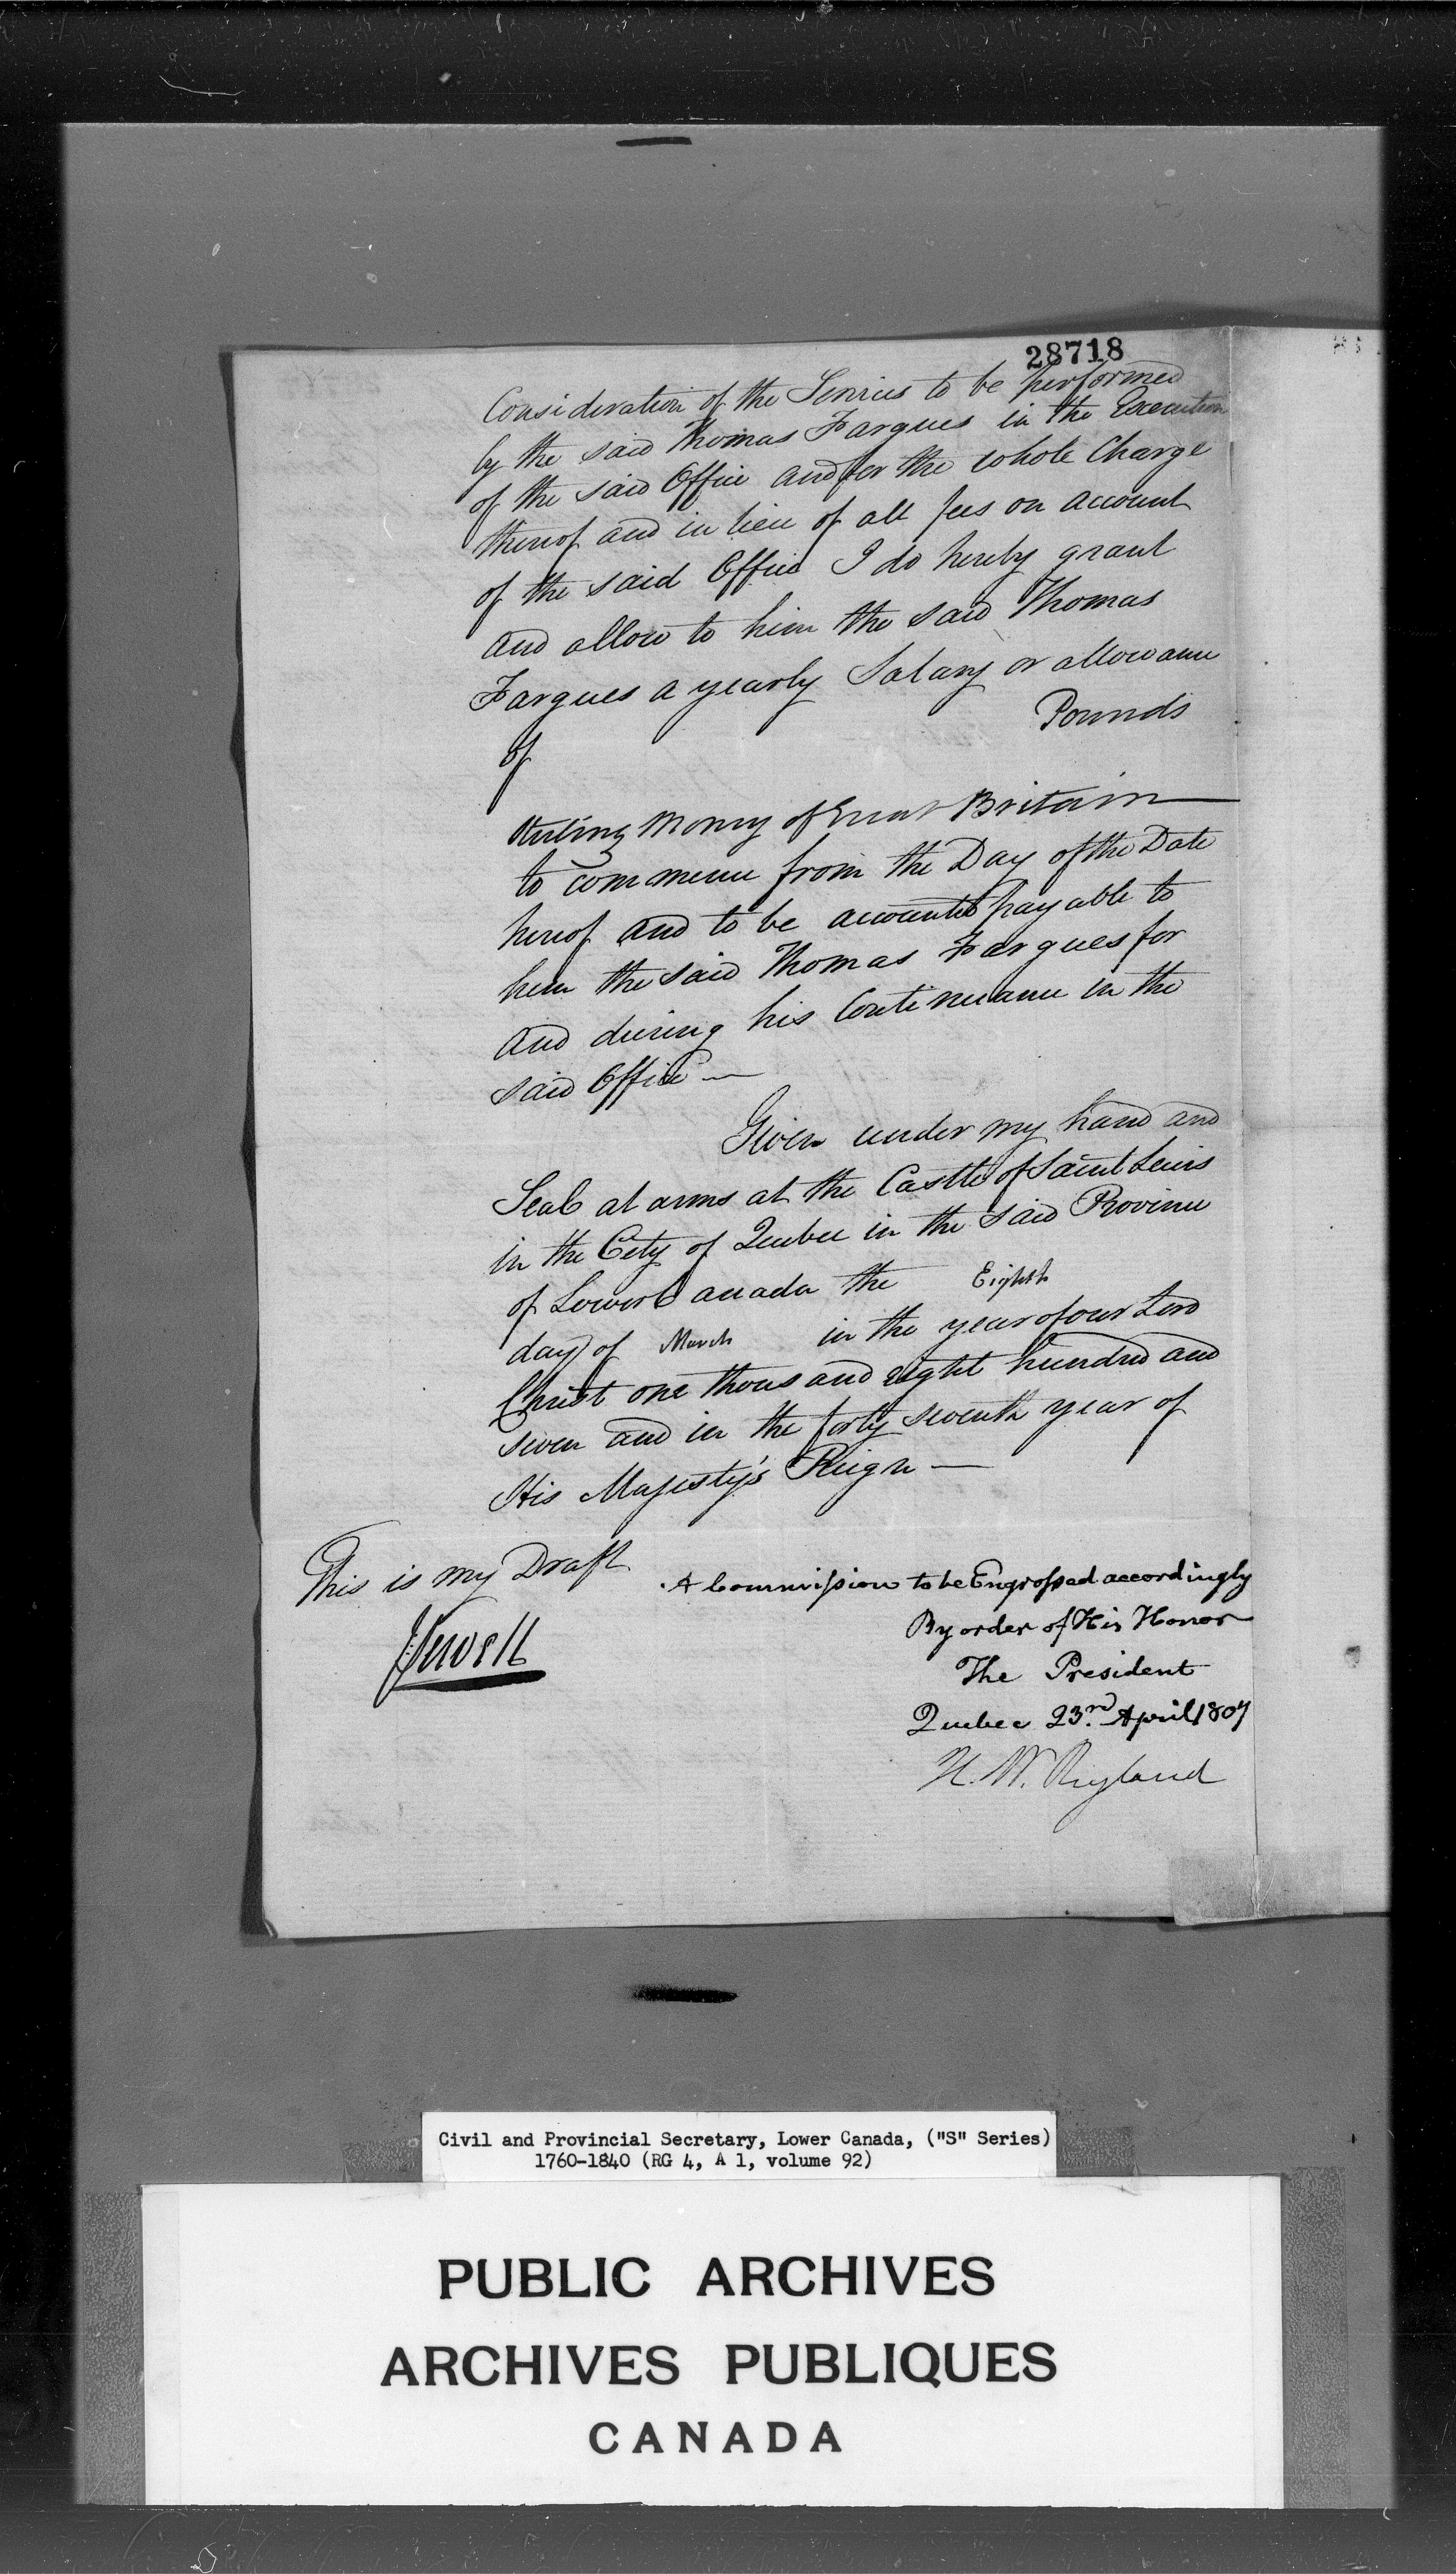 28718
Consideration of the Services to be performed
by the said Thomas Fargues in the Execution
of the said Office and for the whole Charge
thereof and in lieu of all fees on account
of the said Office I do hereby grant
and allow to him the said Thomas
Fargues a yearly Salary or allowance
of Pounds
Sterling Money of Great Britain
to commence from the Day of the Date
hereof and to be accounted payable to
him the said Thomas Fargues for
and during his Continuance in the
said Office —
Given under my hand and
Seal at arms at the Castle of Saint Lewis
in the City of Quebec in the said Province
of Lower Canada the Eighth
day of March in the year of our Lord
Christ one thousand eight hundred and
seven and in the forty seventh year of
His Majesty's Reign —
This is my Draft
J Sewell
A Commission to be Engrossed accordingly
By order of His Honor
The President
Quebec 23.rd April 1807
H. W. Ryland
Civil and Provincial Secretary, Lower Canada, ("S" Series)
1760-1840 (RG 4, A 1, volume 92)
PUBLIC ARCHIVES
ARCHIVES PUBLIQUES
CANADA